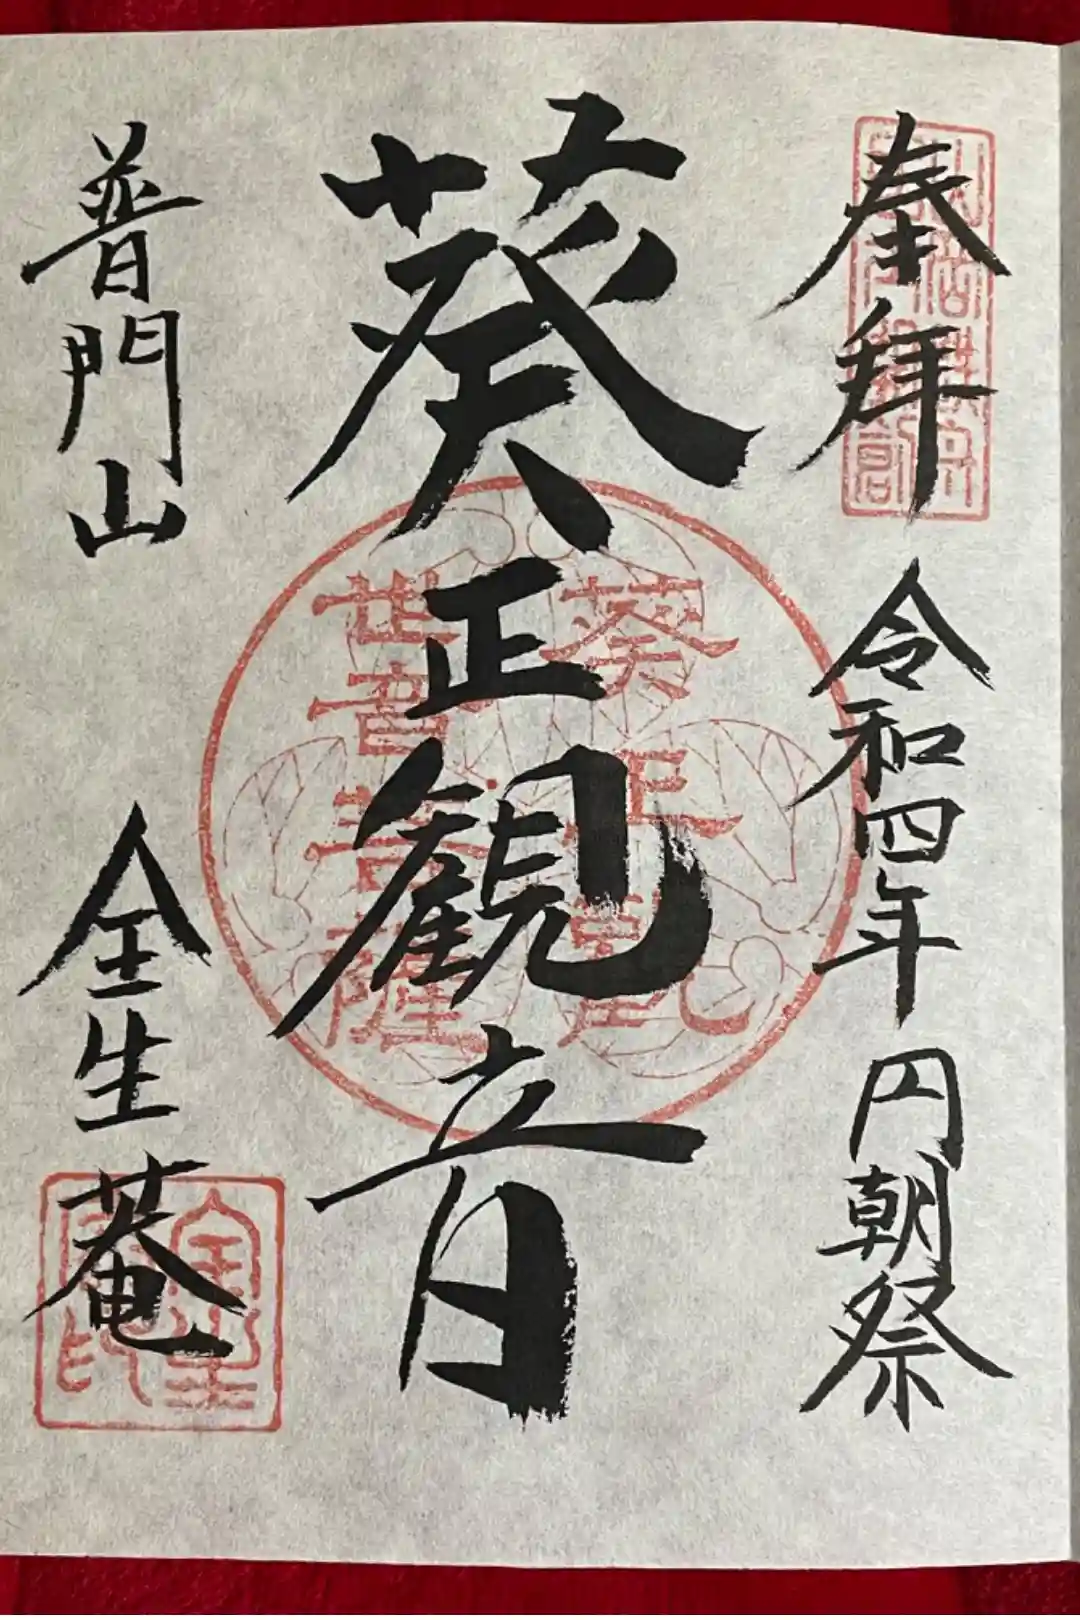 奉拝
令和四年
円朝祭
葵正観音
葵正観
世音菩薩
普門山
全生菴